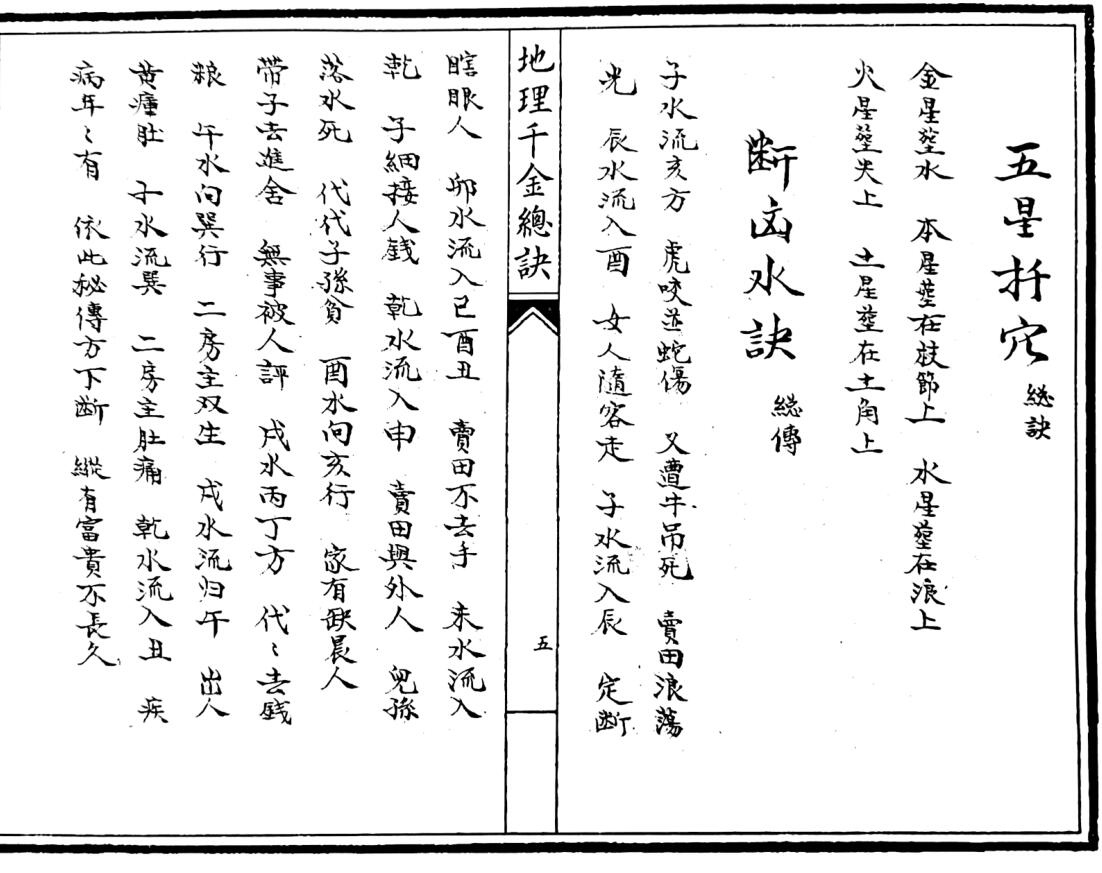 五星扦穴 總訣
金星塟水 本星塟在枝節上 水星塟在浪上
火星塟尖上 土星塟在土角上
断凶水訣 總傳
子水流亥方 虎咬並蛇傷 又遭牛吊死 賣田浪蕩
光 辰水流入酉 女人隨客走 子水流入辰 定断
地理千金總訣
五
瞎眼人 卯水流入巳酉丑 賣田不去手 未水流入
乾 子細接人錢 乾水流入申 賣田與外人 兒孫
落水死 代代子孫貧 酉水向亥行 家有缺唇人
帶子去進舍 無事被人評 戌水丙丁方 代〻去錢
粮 午水向巽行 二房主双生 戌水流归午 出人
黄瘇肚 子水流巽 二房主肚痛 乾水流入丑 疾
病年〻有 依此秘傳方下断 縱有富貴不長久